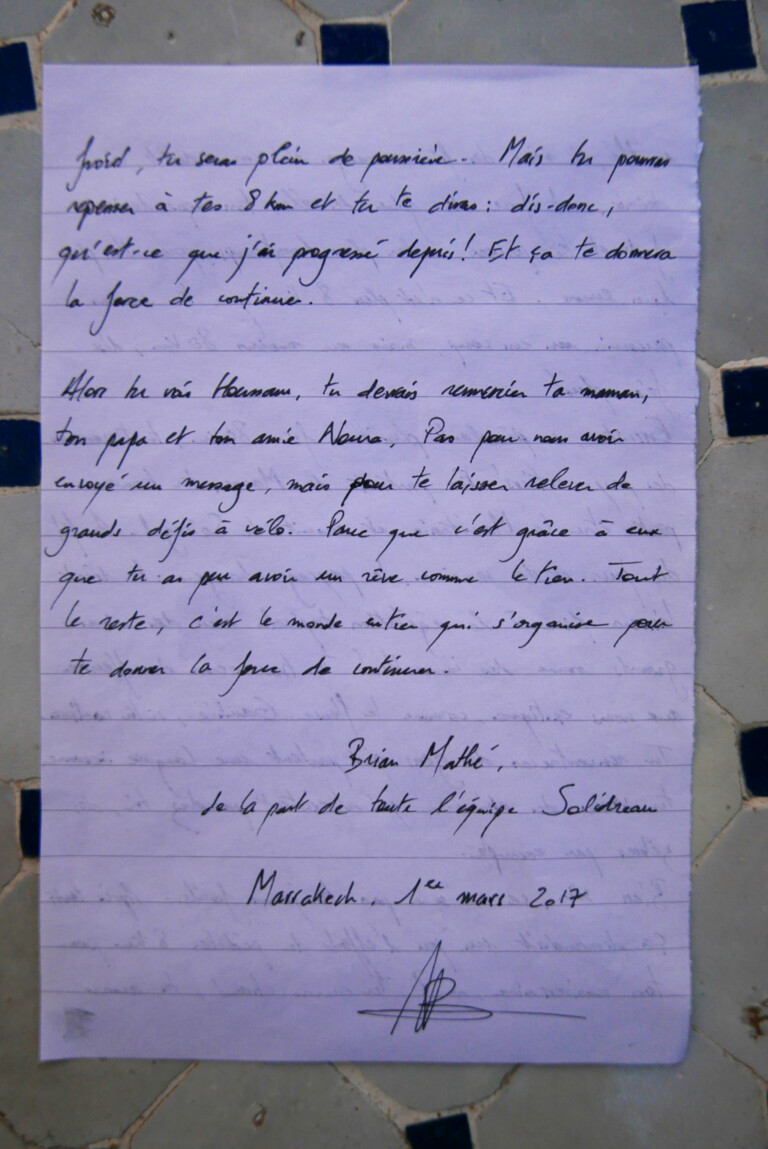 froid, tu seras plein de poussière... Mais tu pourras
repenser à tes 8 km et tu te diras : dis-donc,
qu'est-ce que j'ai progressé depuis ! Et ça te donnera
la force de continuer.
Alors tu vois, tu devrais remercier ta maman,
ton papa et ton amie Noura, Pas pour nous avoir
envoyé un message, mais pour te laisser relever de
grands défis à vélo. Parce que c'est grâce à eux
que tu as peu avoir un rêve comme le tien. Tout
le reste, c'est le monde entier qui s'organise pour
te donner la force de continuer.
Brian Mathé,
de la part de toute l'équipe Solidreau
Marrakech, 1er mars 2017